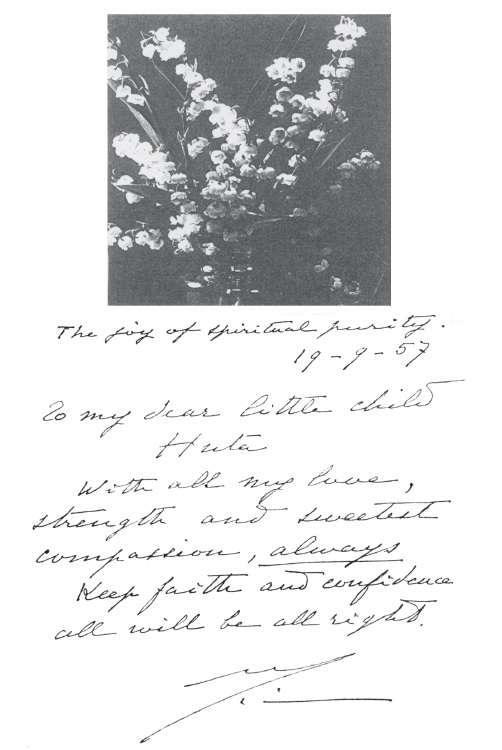 The joy of spiritual purity.
19-9-57
To my dear little child
Huta
With all my love,
strength and sweetest
compassion, always
Keep faith and confidence
all will be all right.